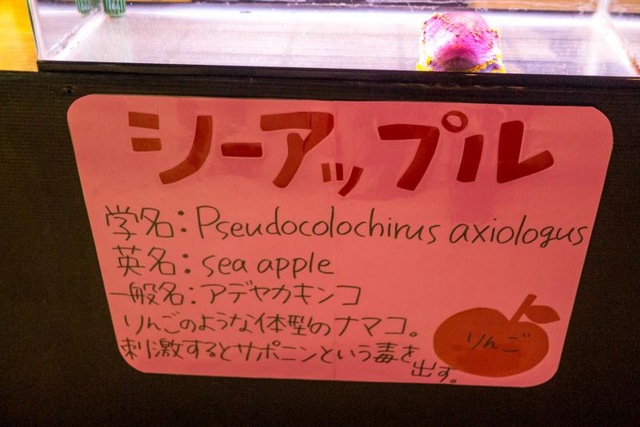 シーアップル
学名：Pseudocolochirus axiologus
英名：sea apple
一般名：アデヤカキンコ
りんごのような体型のナマコ。
刺激するとサポニンという毒を
出す。
りんご